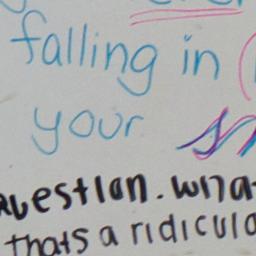 falling in
your
Question. wha
thats a ridiculo